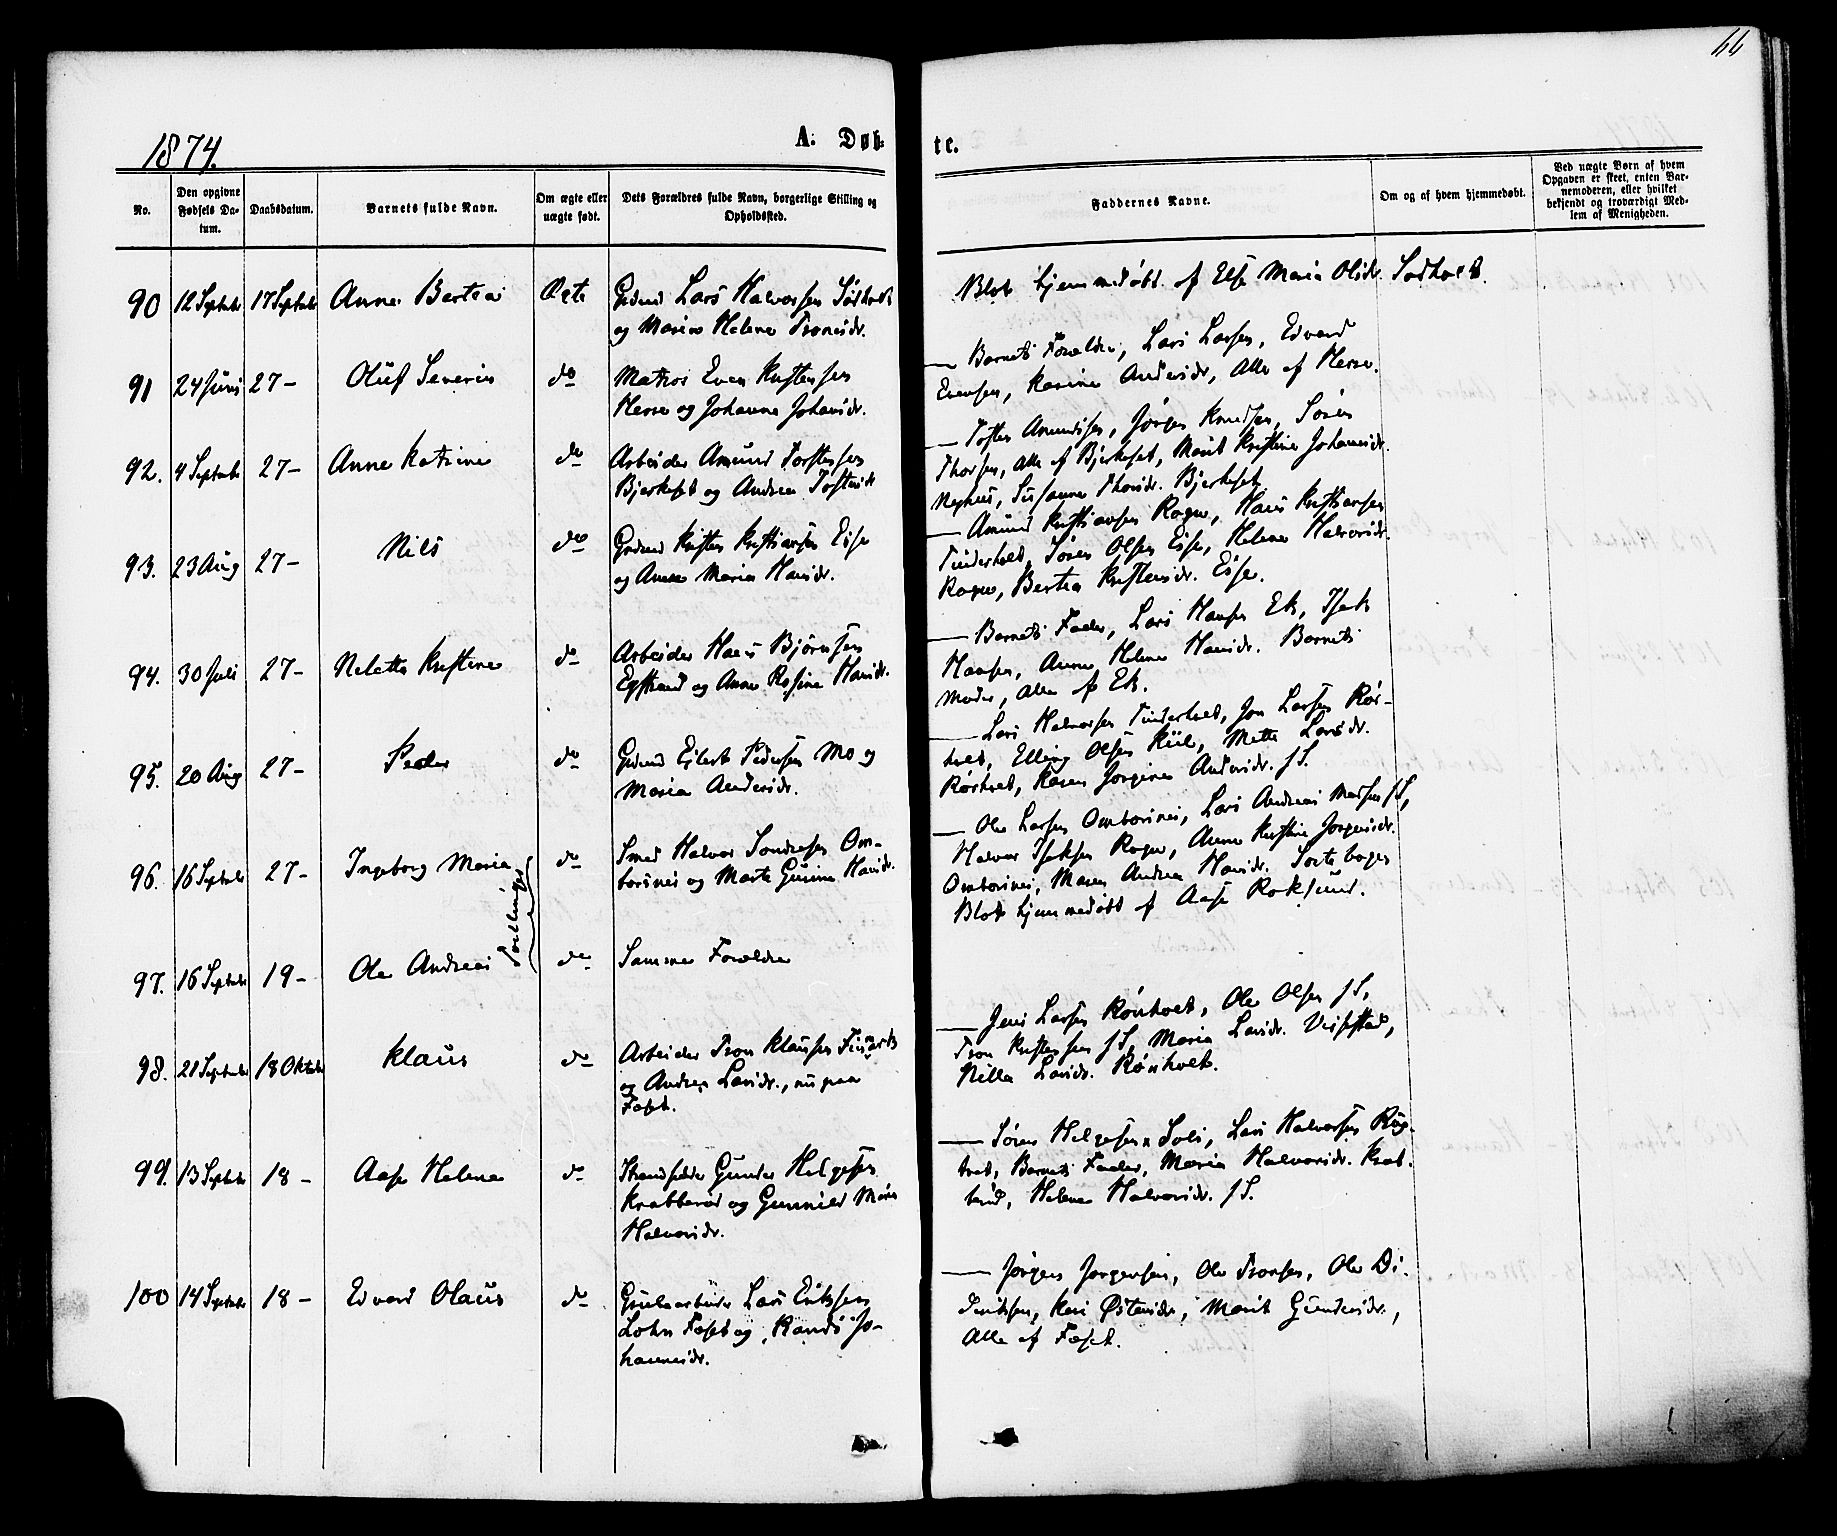 66
1874.
A. Døb-
te.
No.
Den opgivne Fødsels Da-tum.
Daabsdatum.
Barnets fulde Navn.
Om ægte eller uægte født.
Dets Forældres fulde Navn, borgerlige Stilling og Opholdssted.
Faddernes Navne.
Om og af hvem hjemmedøbt.
Ved uægte Børn af hvem Opgaven er skeet, enten Bar-nemoderen, eller hvilket bekjendt og troværdigt Med-lem af Menigheden.
90 12 Septembr 17 Septembr Anne Bertea Ægte Grdmd Lars Halvorsen
og Maren Helene Tronsdr.
Blot hjemmedøbt af Else Maria Olsdr.
91 24 Juni 27- Oluf Severin do Matros Even Kristensen
Herre og Johanne Johansdr.
— Barnets Forældre, Lars Larsen, Edvard
Evensen, Karine Andersdr, Alle af Herre.
92. 4 Septembr 27- Anne Katrine do Arbeider Amund Torstensen
Bjerkeset og Andrea Tostensdr
— Tosten Amundsen, Jørgen Knudsen, Søren
Thorsen, alle af Bjerkeset, Marit Kristine Johannesdr.
Nephus, Susanne Thorsdr. Bjerkeset.
93. 23 Aug 27- Nils do Grdmd Kristen Kristiansen Eise
og Anne Maria Hansdr.
— Amund Kristiansen Rogn, Hans Kristiansen
Tinderholt, Søren Olsen Eise, Helene Halvorsdr.
Rogn, Bertea Kristensdr. Eise.
94. 30 Juli 27- Neletta Kristine do Arbeider Hans Bjørnsen
Egstrand og Anne Rosine Hansdr.
— Barnets Fader, Lars Hansen Ek, Isak
Hansen, Anne Helene Hansdr. Barnets
Moder, alle af Ek.
95. 20 Aug 27- Peder do Grdmd Eilert Pedersen Mo og
Maria Andersdr.
— Lars Halvorsen Tinderholt, Jon Larsen Rør-
holt, Elling Olsen Kiil, Mette Larsdr.
Rørholt, Karen Jorgine Andersdr. f S.
96. 16 Septembr 27- Ingeborg Maria do Smed Halvor Sondresen Om-
borsnes og Marte Gurine Hansdr.
— Ole Larsen Omborsnes, Lars Andreas Madsen f S,
Halvor Isaksen Rogn, Anne Kristine Jorgensdr.
Omborsnes, Maren Andrea Hansdr.
Blot hjemmedøbt af Aase Roksund.
Tvillinger
97. 16 Septbr 19- Ole Andreas do Samme Forældre
98. 21 Septembr 18 Oktobr Klaus do Arbeider Tron Klausen
og Andrea Larsdr., nu paa
Fosset.
— Jens Larsen Rønholt, Ole Olsen f S,
Tron Kristensen f S, Maria Larsdr.
Nilla Larsdr. Rønholt.
99. 13 Septembr 18- Aase Helene do Strandsidder Gunder Helgesen
Krabberød og Gunnild Marie
Halvorsdr.
— Søren Helgesen Soli, Lars Halvorsen Rug-
tvet, Barnets Fader, Maria Halvorsdr.
Helene Halvorsdr. f S.
100 14 Septembr 18- Edvard Olaus do Grubearbeider Lars Eriksen
Lohn Fosset og Randi Jo-
hannesdr.
— Jørgen Jorgensen, Ole Tronsen, Ole Di-
deriksen, Kari Østensdr, Marit Gundersdr.,
Alle af Fosset.